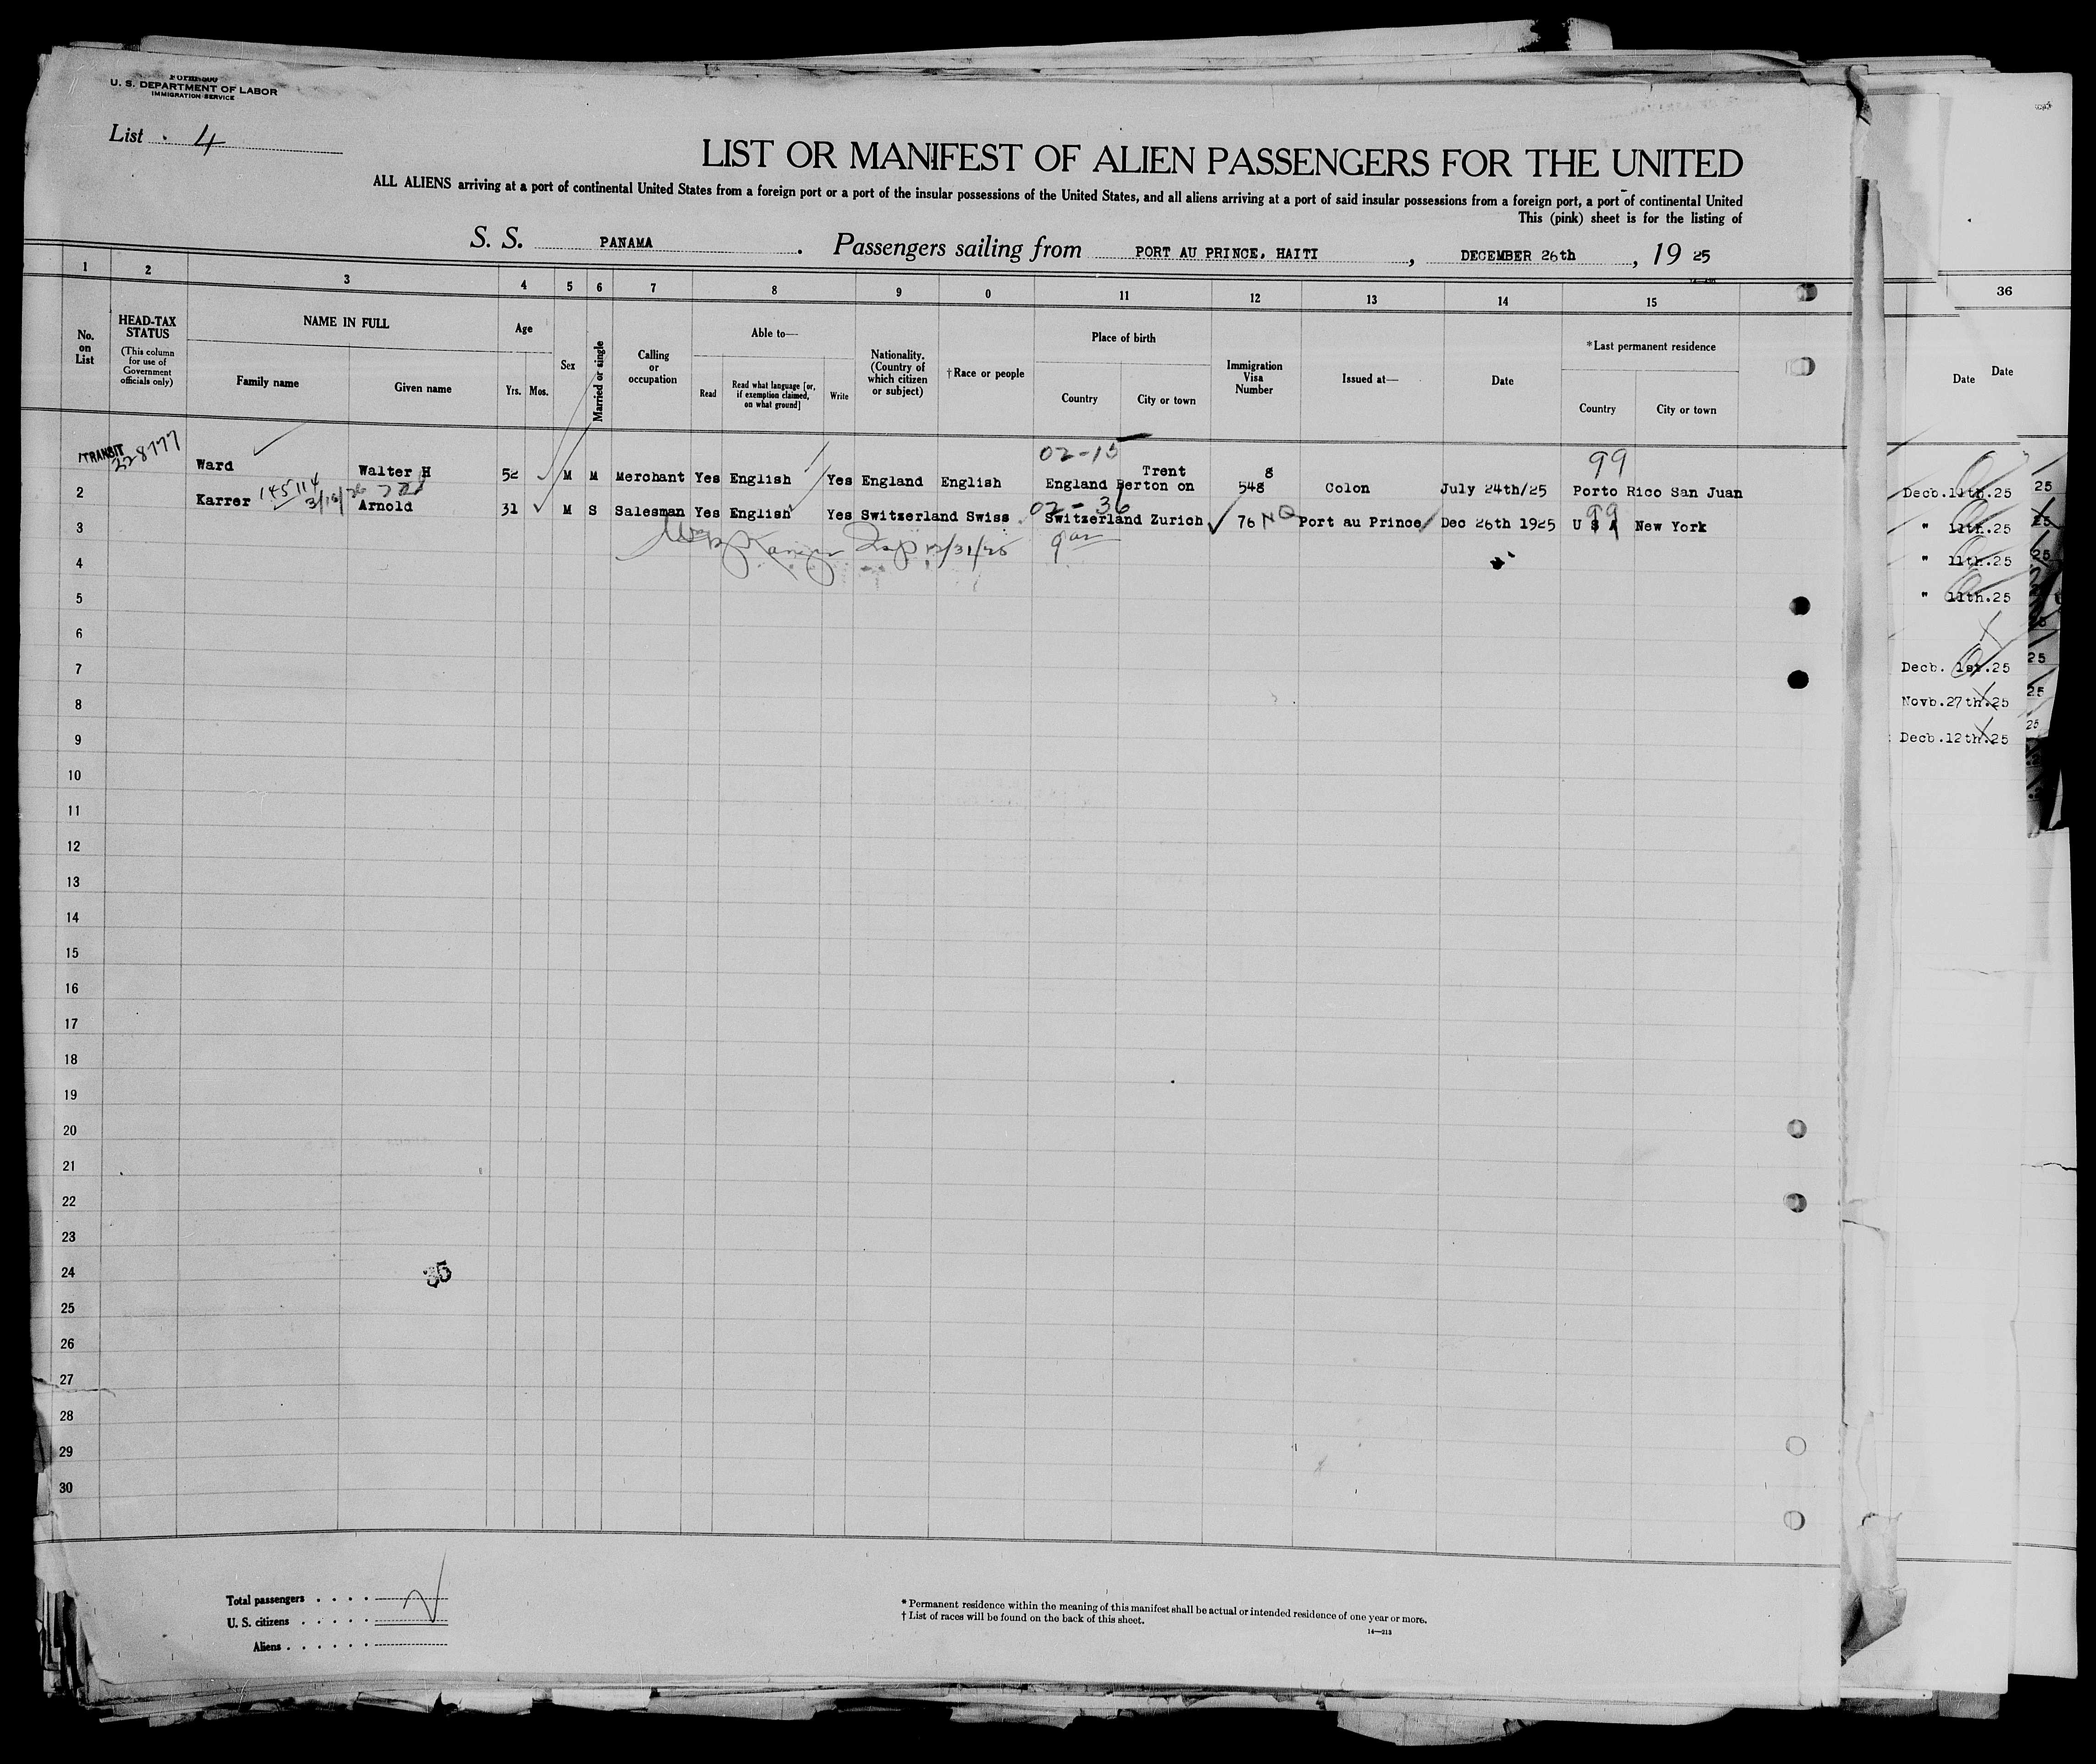 Form 500
U. S. DEPARTMENT OF LABOR
IMMIGRATION SERVICE
List 4
LIST OR MANIFEST OF ALIEN PASSENGERS FOR THE UNITED
ALL ALIENS arriving at a port of continental United States from a foreign port or a port of the insular possessions of the United States, and all aliens arriving at a port of said insular possessions from a foreign port, a port of continental United
This (pink) sheet is for the listing of
S. S. PANAMA . Passengers sailing from PORT AU PRINCE, HAITI , DECEMBER 26th , 19 25
1 2 3 4 5 6 7 8 9 0 11 12 13 14 15
No. on List
HEAD-TAX STATUS
(This column for use of Government officials only)
NAME IN FULL
Family name Given name
Age
Yrs. Mos.
Sex
Married or single
Calling or occupation
Able to—
Read
Read what language [or, if exemption claimed, on what ground]
Write
Nationality. (Country of which citizen or subject)
†Race or people
Place of birth
Country City or town
Immigration Visa Number
Issued at—
Date
*Last permanent residence
Country City or town
36
Date Date
TRANSIT 228777
02-15 99
Ward Walter H 52 M M Merchant Yes English Yes England English England Berton on Trent 548 8 Colon July 24th/25 Porto Rico San Juan
145114 3/16/26
02-36 99
2 Karrer Arnold 31 M S Salesman Yes English Yes Switzerland Swiss Switzerland Zurich 76 NQ Port au Prince Dec 26th 1925 U S A New York
12/31/25
3
4
5
6
7
8
9
10
11
12
13
14
15
16
17
18
19
20
21
22
23
24
25
26
27
28
29
30
35
Decb.11th.25 25
" 11th.25 25
" 11th.25 25
" 11th.25
Decb. 1st.25 25
Novb.27th.25 25
Decb.12th.25 25
Total passengers . . . .
U. S. citizens . . . . .
Aliens . . . . . .
* Permanent residence within the meaning of this manifest shall be actual or intended residence of one year or more.
† List of races will be found on the back of this sheet.
14—213